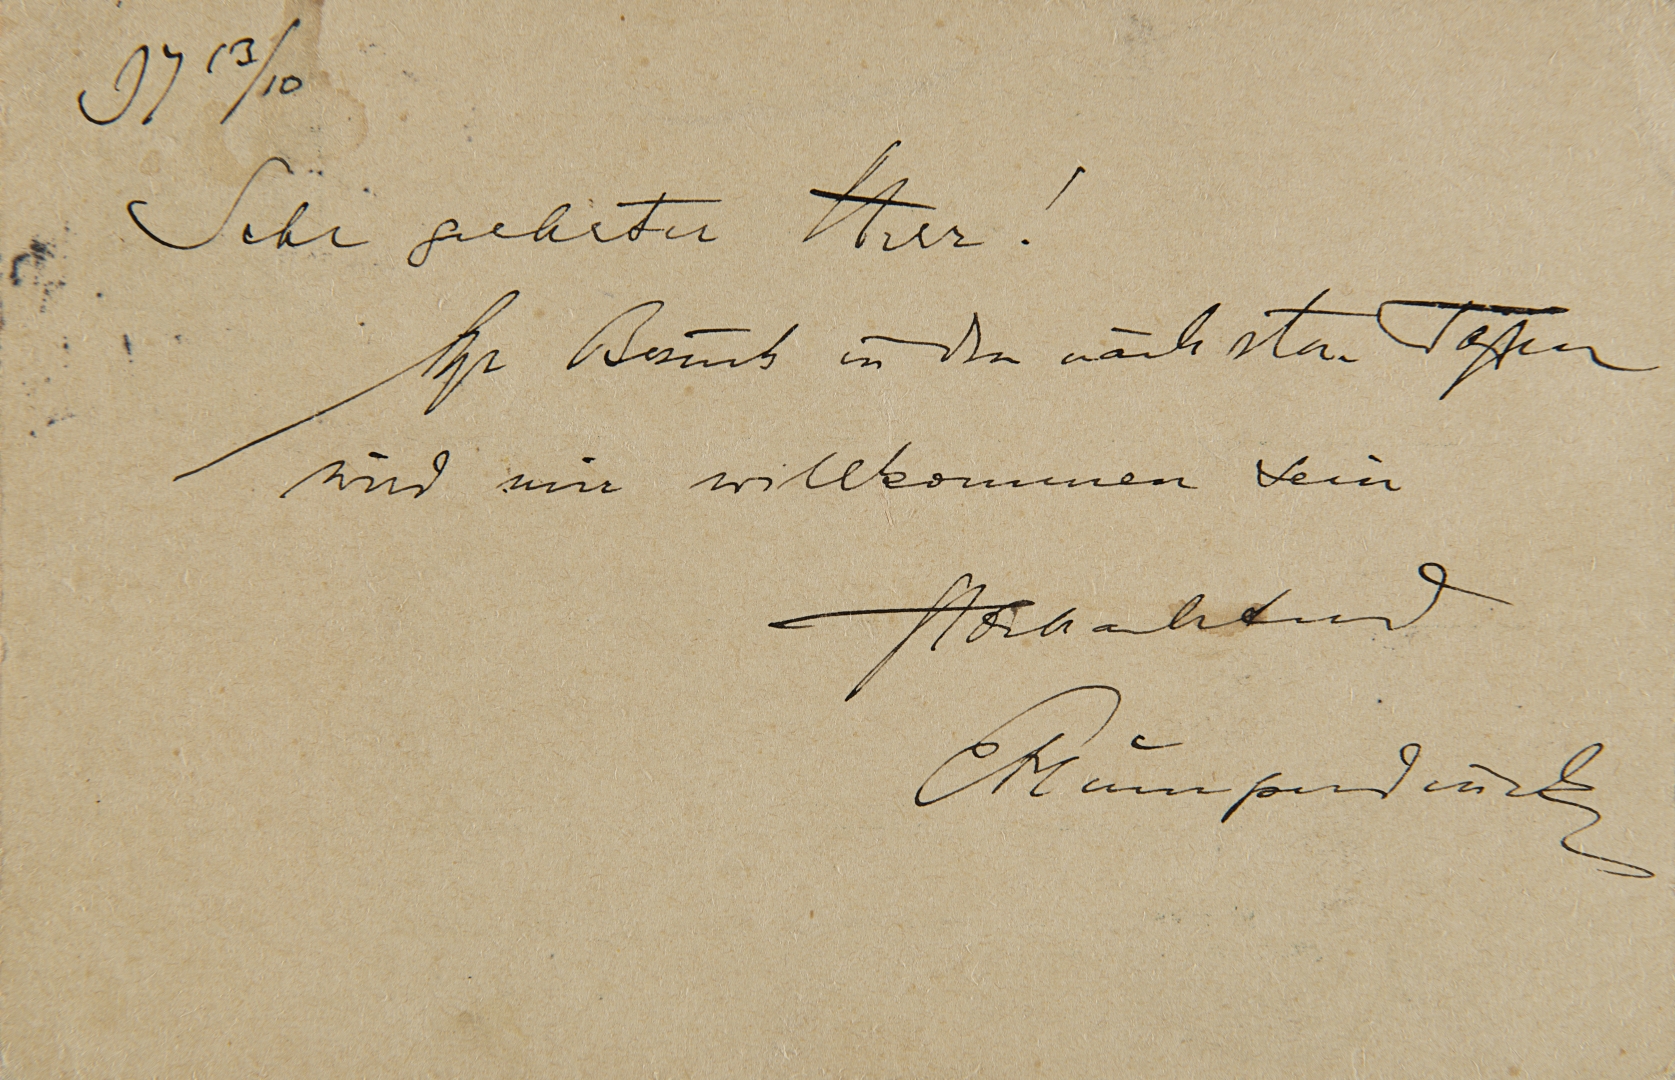 97 13/10
Sehr geehrter Herr!
Ihr Besuch in den nächsten Tagen
wird mir willkommen sein
Hochachtend
EHumperdinck